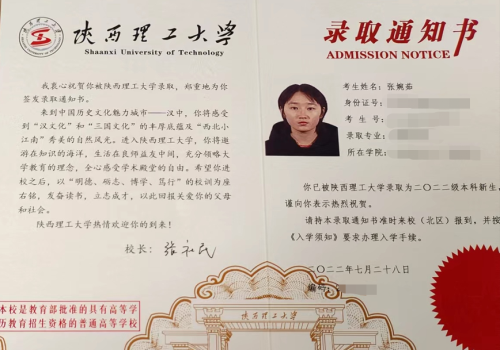 陕西理工大学
Shaanxi University of Technology
我衷心祝贺你被陕西理工大学录取，郑重地为你
签发录取通知书。
来到中国历史文化魅力城市——汉中，你将感受
到“汉文化”和“三国文化”的丰厚底蕴及“西北小
江南”秀美的自然风光。进入陕西理工大学，你将遨
游在知识的海洋，生活在良师益友中间，充分领略大
学教育的理念，全心感受学术殿堂的自由。希望你进
校之后，以“明德、砺志、博学、笃行”的校训为座
右铭，发奋读书，立志成才，以此回报关爱你的父母
和社会。
陕西理工大学热情欢迎你的到来！
校长：张社民
本校是教育部批准的具有高等学
历教育招生资格的普通高等学校
录取通知书
ADMISSION NOTICE
考生姓名：张婉茹
身份证号：
考 生 号：
录取专业：
所在学院：
你已被陕西理工大学录取为二〇二二级本科新生。
谨向你表示热烈祝贺。
请持本录取通知书准时来校（北区）报到，并按
《入学须知》要求办理入学手续。
二〇二二年七月二十八日
编号：
陕西理工大学